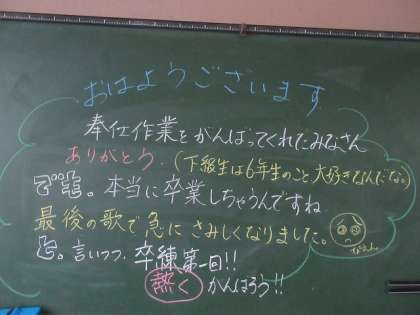 おはようございます
奉仕作業をがんばってくれたみなさん
ありがとう。(下級生は6年生のこと大好きなんだな。)
。本当に卒業しちゃうんですね
最後の歌で急にさみしくなりました。
。言いつつ、卒練第一回!!
熱くがんばろう!!